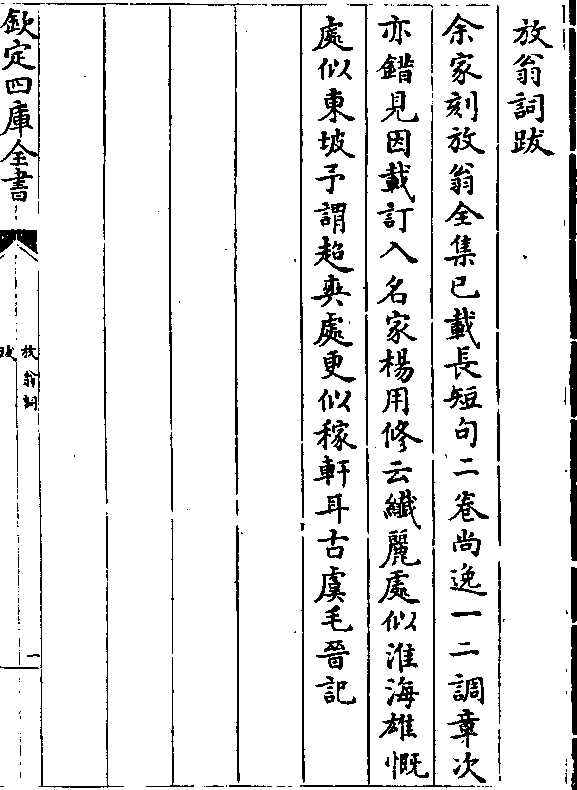 放翁詞跋
余家刻放翁全集已載長短句二卷尚逸一二調章次
亦錯見因載訂入名家楊用修云纖麗處似淮海雄慨
處似東坡予謂超爽處更似稼軒耳古虞毛晉記
欽定四庫全書
放翁詞
跋
一